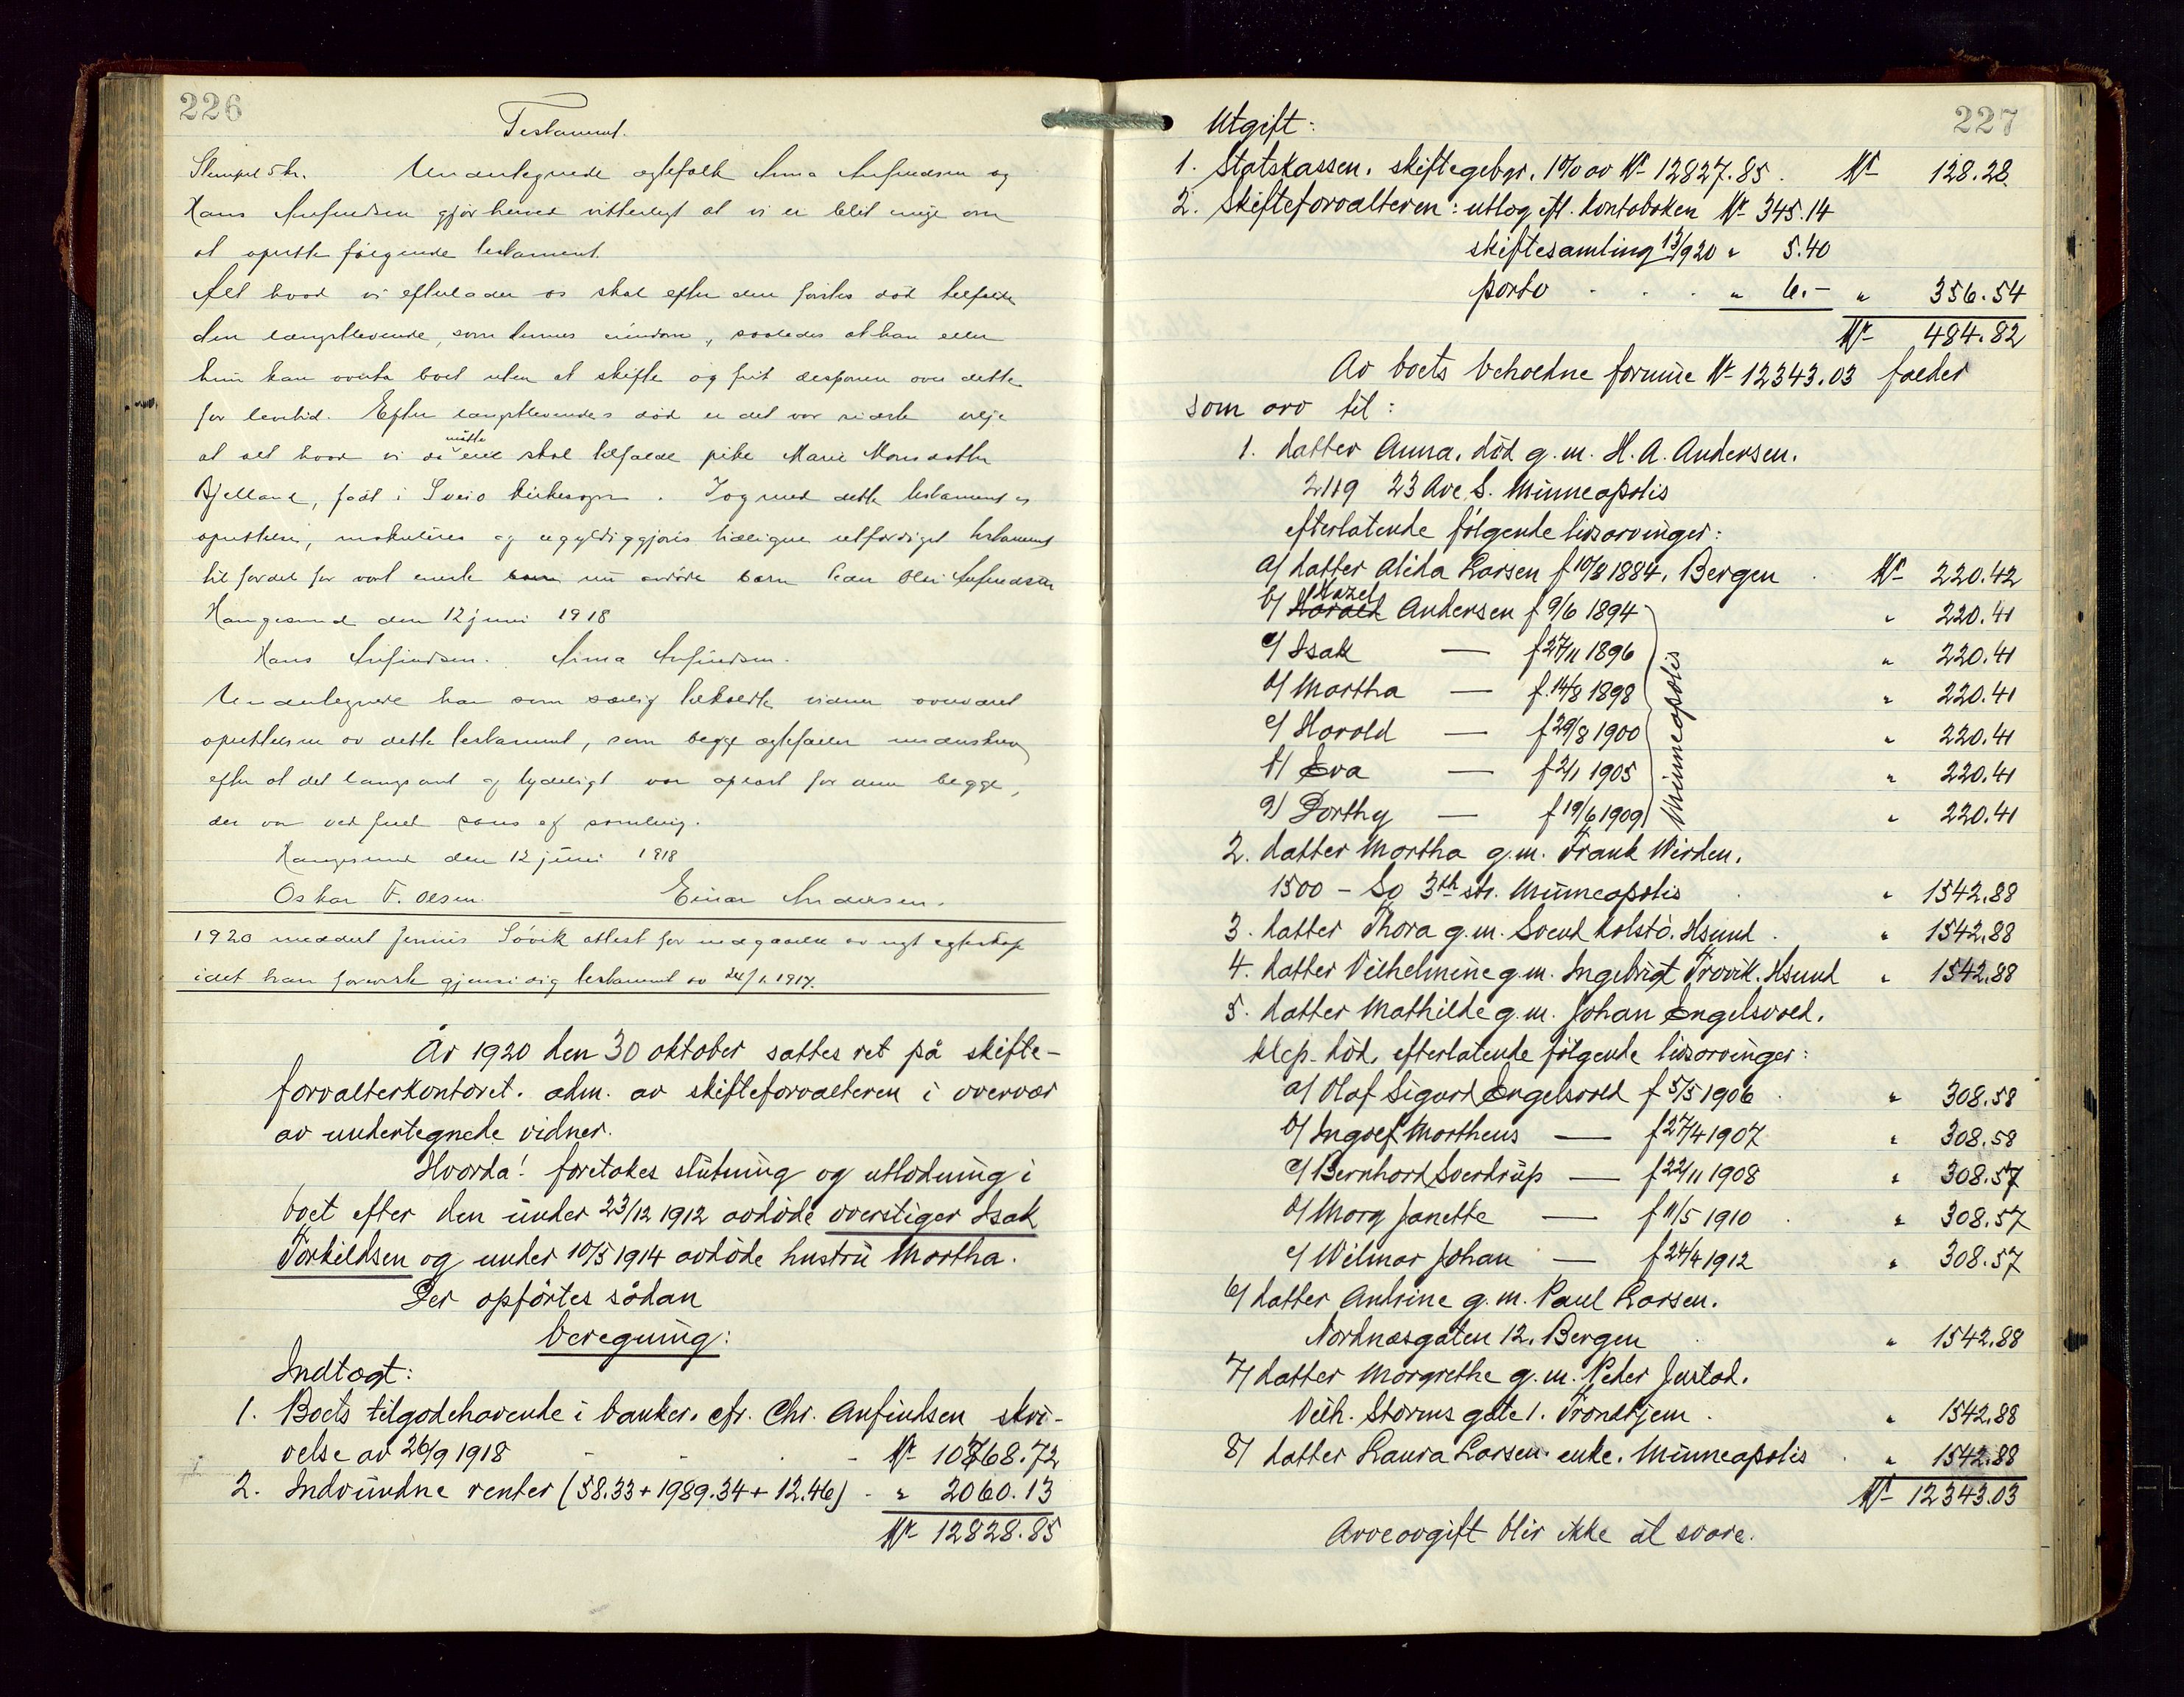 226
Testament.
Stempel 5 kr. Undertegnede egtefolk Anna Anfindsen og
Hans Anfindsen gjör herved vitterligt at vi er blit enige om
at oprette følgende testament.
Alt hvad vi efterlader os skal efter den førstes død tilfalde
den længstlevende, som dennes eiendom, saaledes at han eller
hun kan overta boet uten at skifte og frit disponere over dette
for levetid. Efter længstlevendes død er det vor sidste vilje
at alt hvad vi da måtte eie skal tilfalde pike Marie Monsdatter
Bjelland, født i Sveio kirkesogn. Og med dette testaments
oprettelse, makuleres og ugyldiggjøres tidligere utfærdiget testament
til fordel for vort eneste barn nu avdøde barn Peder Olai Anfindsen
Haugesund den 12 juni 1918
Hans Anfindsen. Anna Anfindsen.
Undertegnede har som særlig tilkaldte vidner overværet
oprettelsen av dette testament, som begge egtefæller underskrev
efter at det langsomt og tydeligt var oplæst for dem begge,
der var ved fuld sans og samling.
Haugesund den 12 juni 1918
Oskar F. Olsen. Einar Andersen.
1920 meddelt Jennis Søvik attest for indgaaelse av nyt egteskap
idet han foreviste gjensidig testament av 24/1. 1917.
År 1920 den 30 oktober sattes ret på skifte-
forvalterkontoret. adm. av skifteforvalteren i overvær
av undertegnede vidner.
Hvorda! foretokes slutning og utlodning i
boet efter den under 23/12 1912 avdöde overstiger Isak
Torkildsen og under 10/5 1914 avdöde hustru Martha.
Der opförtes sådan
beregning:
Indtægt:
1. Boets tilgodehavende i banker. cfr. Chr. Anfindsen skri-
velse av 26/9 1918 - - . - Kr 10768.72
2. Indvundne renter (58.33 + 1989.34 + 12.46) - " 2060.13
Kr 12828.85
227
Utgift:
1. Statskassen. skiftegebyr. 1% av Kr 12827.85. Kr 128.28
2. Skifteforvalteren: utlog eft. kontoboken Kr 345.14
skiftesamling 13/9 20 " 5.40
porto . . . " 6.- " 356.54
Kr 484.82
Av boets beholdne formue Kr 12343.03 falder
som arv til:
1. datter Anna. död g.m. H. A. Andersen.
2119 23 Ave S. Minneapolis
efterlatende fölgende livsarvinger:
a/ datter Alida Larsen f 10/8 1884. Bergen . Kr 220.42
b/ Harald Hazel Andersen f 9/6 1894 " 220.41
c/ Isak — f 27/11 1896 " 220.41
d/ Martha — f. 14/8 1898 " 220.41
e/ Harold — f 29/8 1900 " 220.41
f/ Eva — f 2/1 1905 " 220.41
g/ Dorthy — f 19/6 1909 " 220.41
Minneapolis
2. datter Martha g.m. Frank Wirden.
1500 - So 3th str. Minneapolis . " 1542.88
3. datter Thora g.m. Svend Kolstö. Hsund . " 1542.88
4. datter Vilhelmine g.m. Ingebrigt Trovik. Hsund " 1542.88
5. datter Mathilde g.m. Johan Engelsvold.
Klep. död. efterlatende fölgende livsarvinger:
a/ Olaf Sigurd Engelsvold f 5/5 1906 . " 308.58
b/ Ingolf Martheus — f 27/4 1907 " 308.58
c/ Bernhard Sverdrup — f 22/11 1908 " 308.57
d/ Mary Janette — f 11/5 1910 . " 308.57
e/ Wilmar Johan — f 24/4 1912 " 308.57
6/ datter Andrine g.m. Paul Larsen.
Nordnæsgaten 12. Bergen . " 1542.88
7/ datter Margrethe g.m. Peder Justad.
Vilh. Storms gate 1. Trondhjem . " 1542.88
8/ datter Laura Larsen. enke. Minneapolis . " 1542.88
Kr 12343.03
Arveavgift blir ikke at svare.